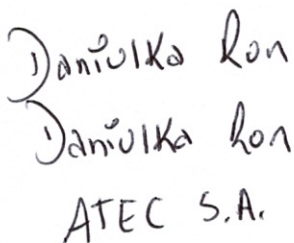 Daniulka Ron
Daniulka Ron
ATEC S.A.